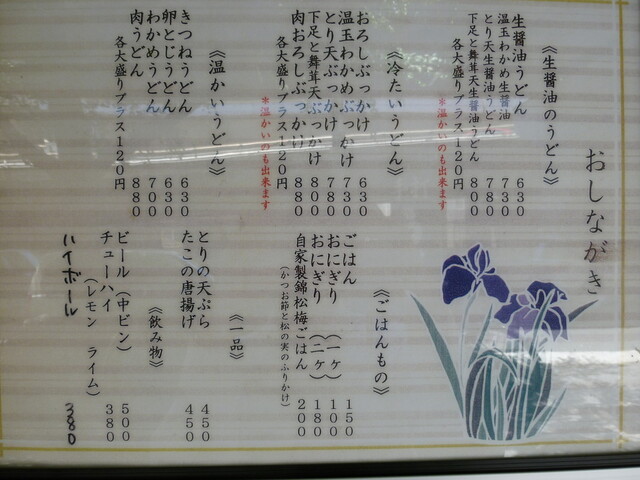 おしながき
《生醤油のうどん》
生醤油うどん 630
温玉わかめ生醤油 730
とり天生醤油うどん 780
下足と舞茸天生醤油うどん 800
各大盛りプラス120円
*温かいのも出来ます
《冷たいうどん》
おろしぶっかけ 630
温玉わかめぶっかけ 730
とり天ぶっかけ 780
下足と舞茸天ぶっかけ 800
肉おろしぶっかけ 880
各大盛りプラス120円
*温かいのも出来ます
《温かいうどん》
きつねうどん 630
卵とじうどん 630
わかめうどん 700
肉うどん 880
各大盛りプラス120円
《ごはんもの》
ごはん 150
おにぎり (一ケ) 100
おにぎり (二ケ) 180
自家製錦松梅ごはん 200
(かつお節と松の実のふりかけ)
《一品》
とりの天ぷら 450
たこの唐揚げ 450
《飲み物》
ビール (中ビン) 500
チューハイ 380
(レモン ライム)
ハイボール 380